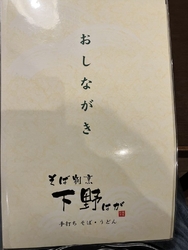 おしながき
そば割烹
下野はが
手打ち そば・うどん